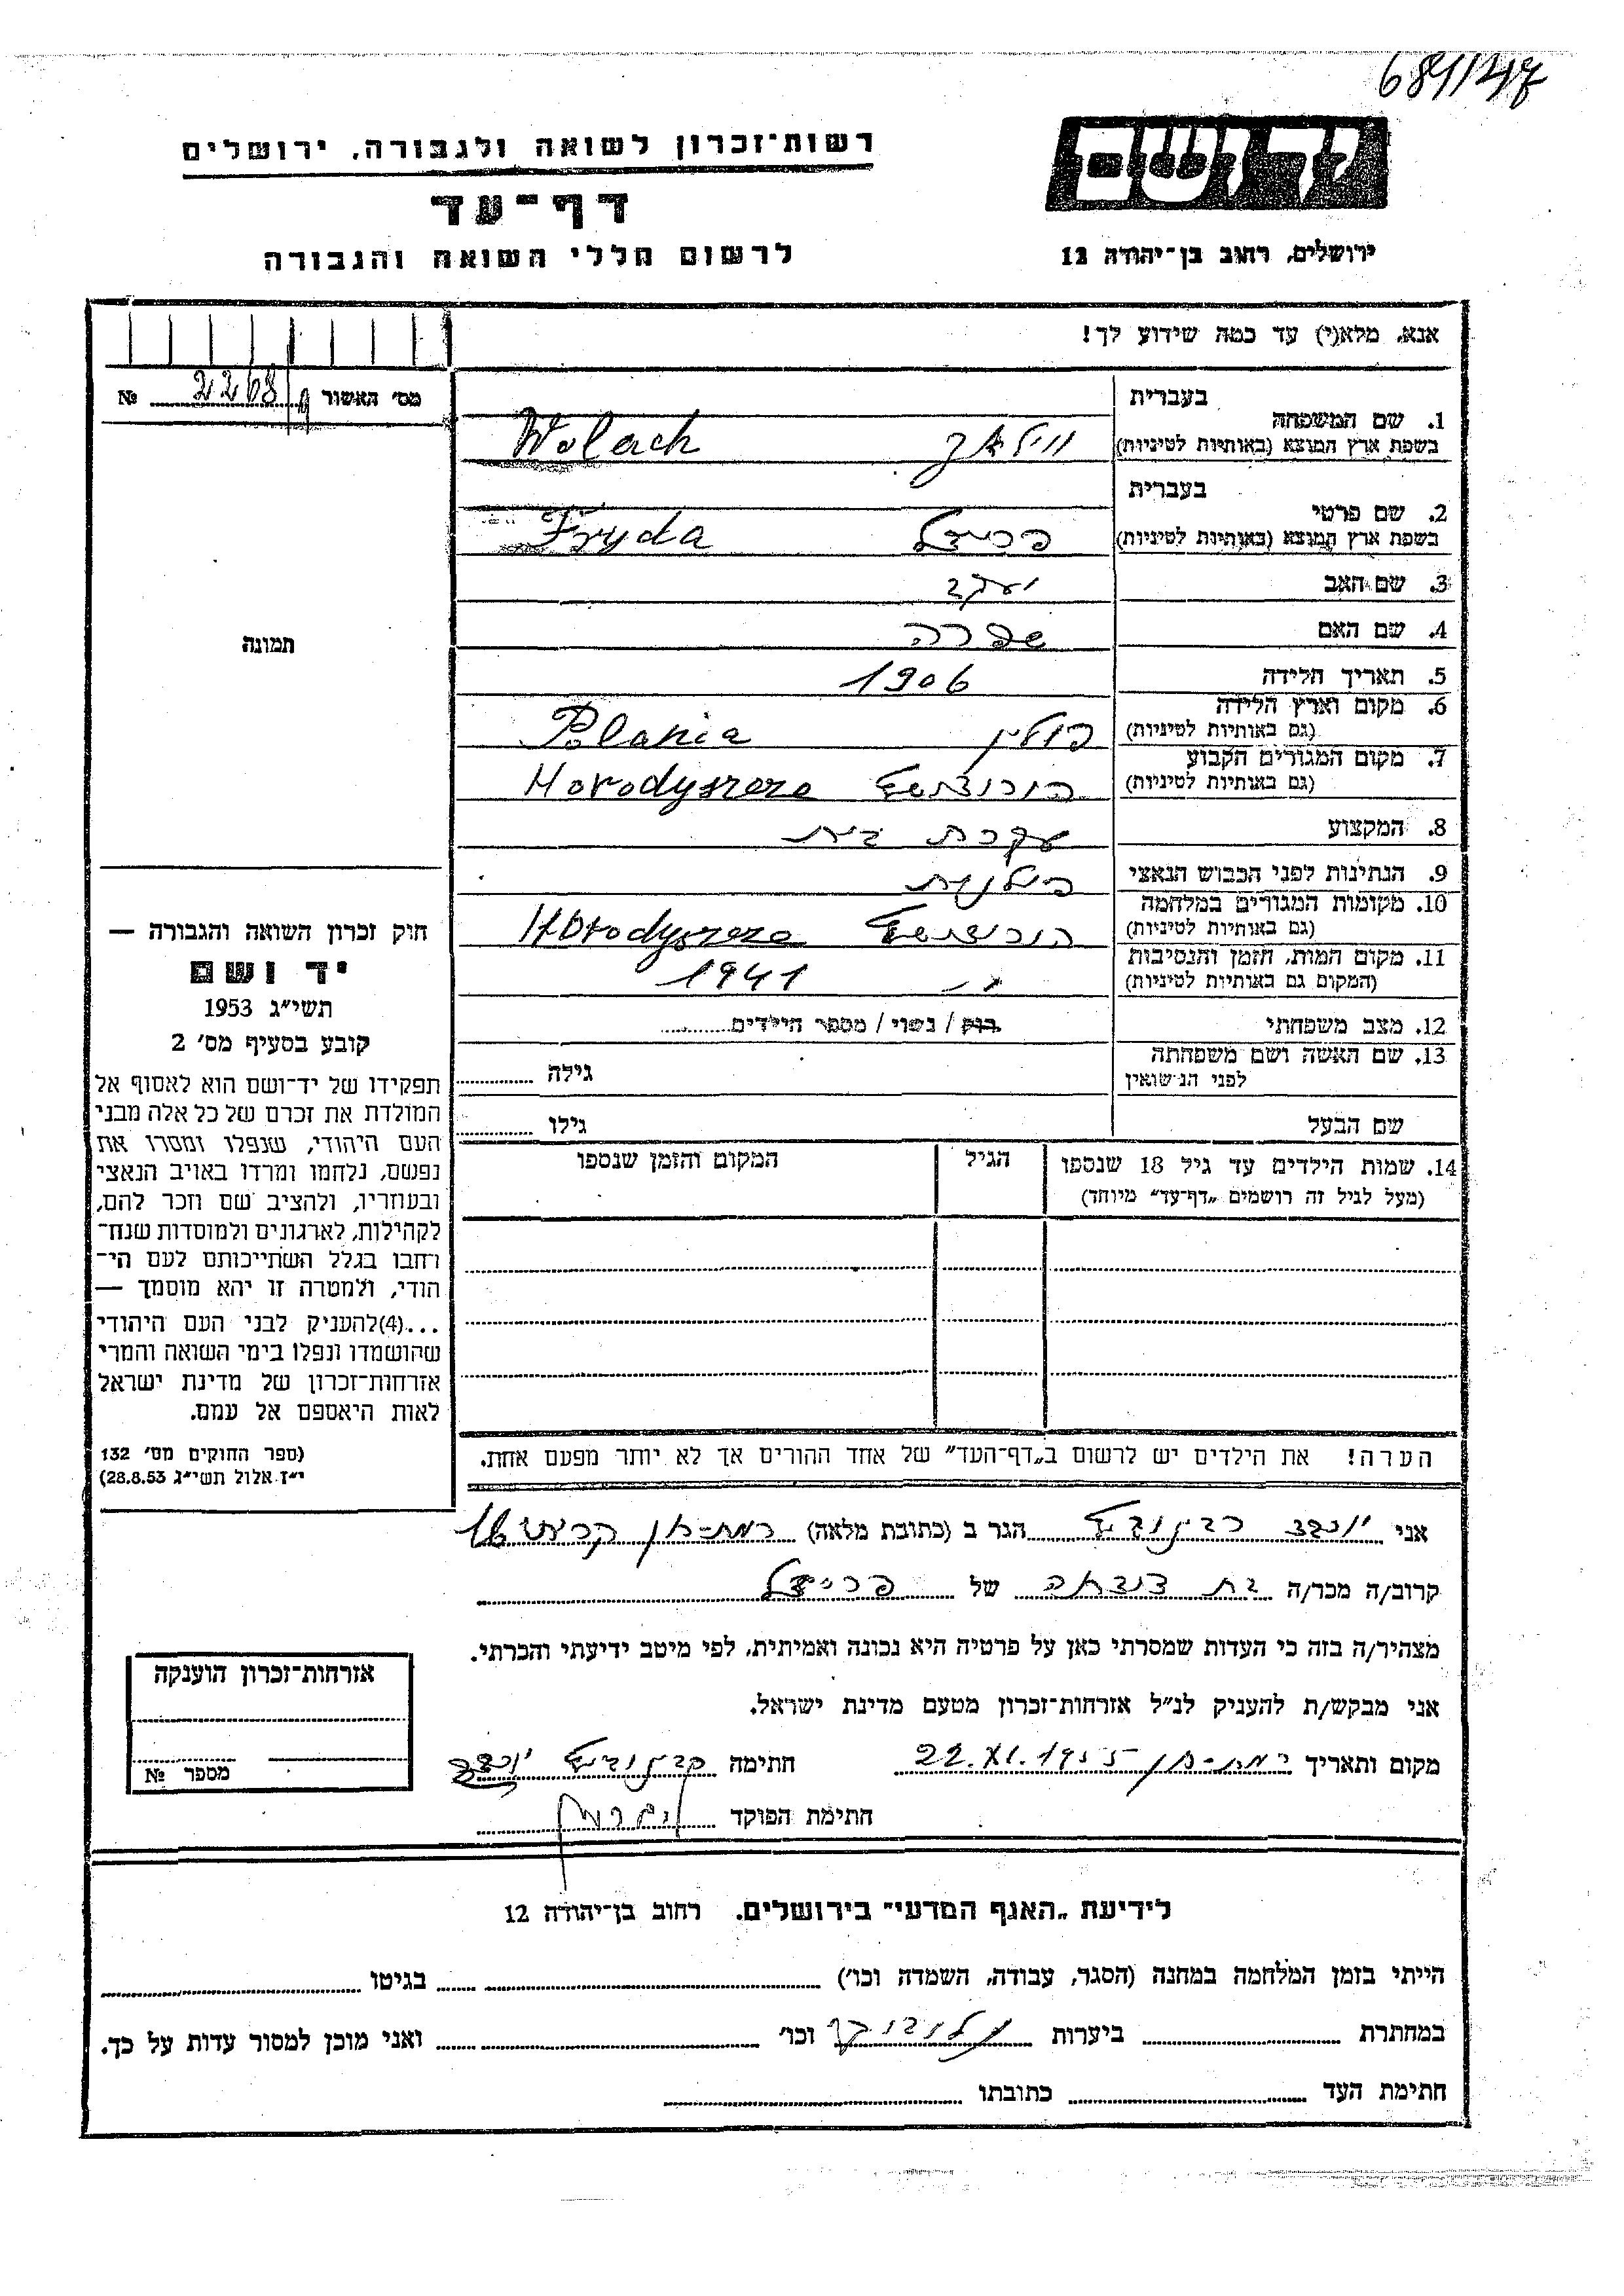 684/247
רשות־זכרון לשואה ולגבורה, ירושלים
יד ושם
דף־עד
לרשום חללי השואה והגבורה
ירושלים, רחוב בן־יהודה 12
אנא, מלא(י) עד כמה שידוע לך!
מס׳ האשור 2268 №
1. שם המשפחה
בעברית
בשפת ארץ המוצא (באותיות לטיניות)
וולאך Wolach
2. שם פרטי
בעברית
בשפת ארץ המוצא (באותיות לטיניות)
פריידל Fryda
3. שם האב יעקב
4. שם האם שפרה
5. תאריך הלידה 1906
6. מקום וארץ הלידה
(גם באותיות לטיניות)
פולין Polania
7. מקום המגורים הקבוע
(גם באותיות לטיניות)
Horodyszcze
8. המקצוע עקרת בית
9. הנתינות לפני הכבוש הנאצי פולנית
10. מקומות המגורים במלחמה
(גם באותיות לטיניות)
Horodyszcze
11. מקום המות, הזמן והנסיבות
(המקום גם באותיות לטיניות)
1941
12. מצב משפחתי רוק / נשוי / מספר הילדים
13. שם האשה ושם משפחתה
לפני הנישואין
גילה
שם הבעל גילו
14. שמות הילדים עד גיל 18 שנספו
(מעל לגיל זה רושמים „דף־עד” מיוחד)
הגיל
המקום והזמן שנספו
הערה! את הילדים יש לרשום ב„דף־העד” של אחד ההורים אך לא יותר מפעם אחת.
תמונה
חוק זכרון השואה והגבורה —
יד ושם
תשי״ג 1953
קובע בסעיף מס׳ 2
תפקידו של יד־ושם הוא לאסוף אל
המולדת את זכרם של כל אלה מבני
העם היהודי, שנפלו ומסרו את
נפשם, נלחמו ומרדו באויב הנאצי
ובעוזריו, ולהציב שם וזכר להם,
לקהילות, לארגונים ולמוסדות שנח־
רבו בגלל השתייכותם לעם הי־
הודי, ולמטרה זו יהא מוסמך —
...(4)להעניק לבני העם היהודי
שהושמדו ונפלו בימי השואה והמרי
אזרחות־זכרון של מדינת ישראל
לאות היאספם אל עמם.
(ספר החוקים מס׳ 132
י״ז אלול תשי״ג 28.8.53)
אני יוכבד רבינוביץ הגר ב (כתובת מלאה) רמת-גן
קרוב/ה מכר/ה בת דודתה של פריידל
מצהיר/ה בזה כי העדות שמסרתי כאן על פרטיה היא נכונה ואמיתית, לפי מיטב ידיעתי והכרתי.
אני מבקש/ת להעניק לנ״ל אזרחות־זכרון מטעם מדינת ישראל.
מקום ותאריך רמת-גן 22.XI.1955 חתימה רבינוביץ יוכבד
חתימת הפוקד
אזרחות־זכרון הוענקה
מספר №
לידיעת „האגף המדעי” בירושלים, רחוב בן־יהודה 12
הייתי בזמן המלחמה במחנה (הסגר, עבודה, השמדה וכו׳) בגיטו
במחתרת ביערות וכו׳ ואני מוכן למסור עדות על כך.
חתימת העד כתובתו